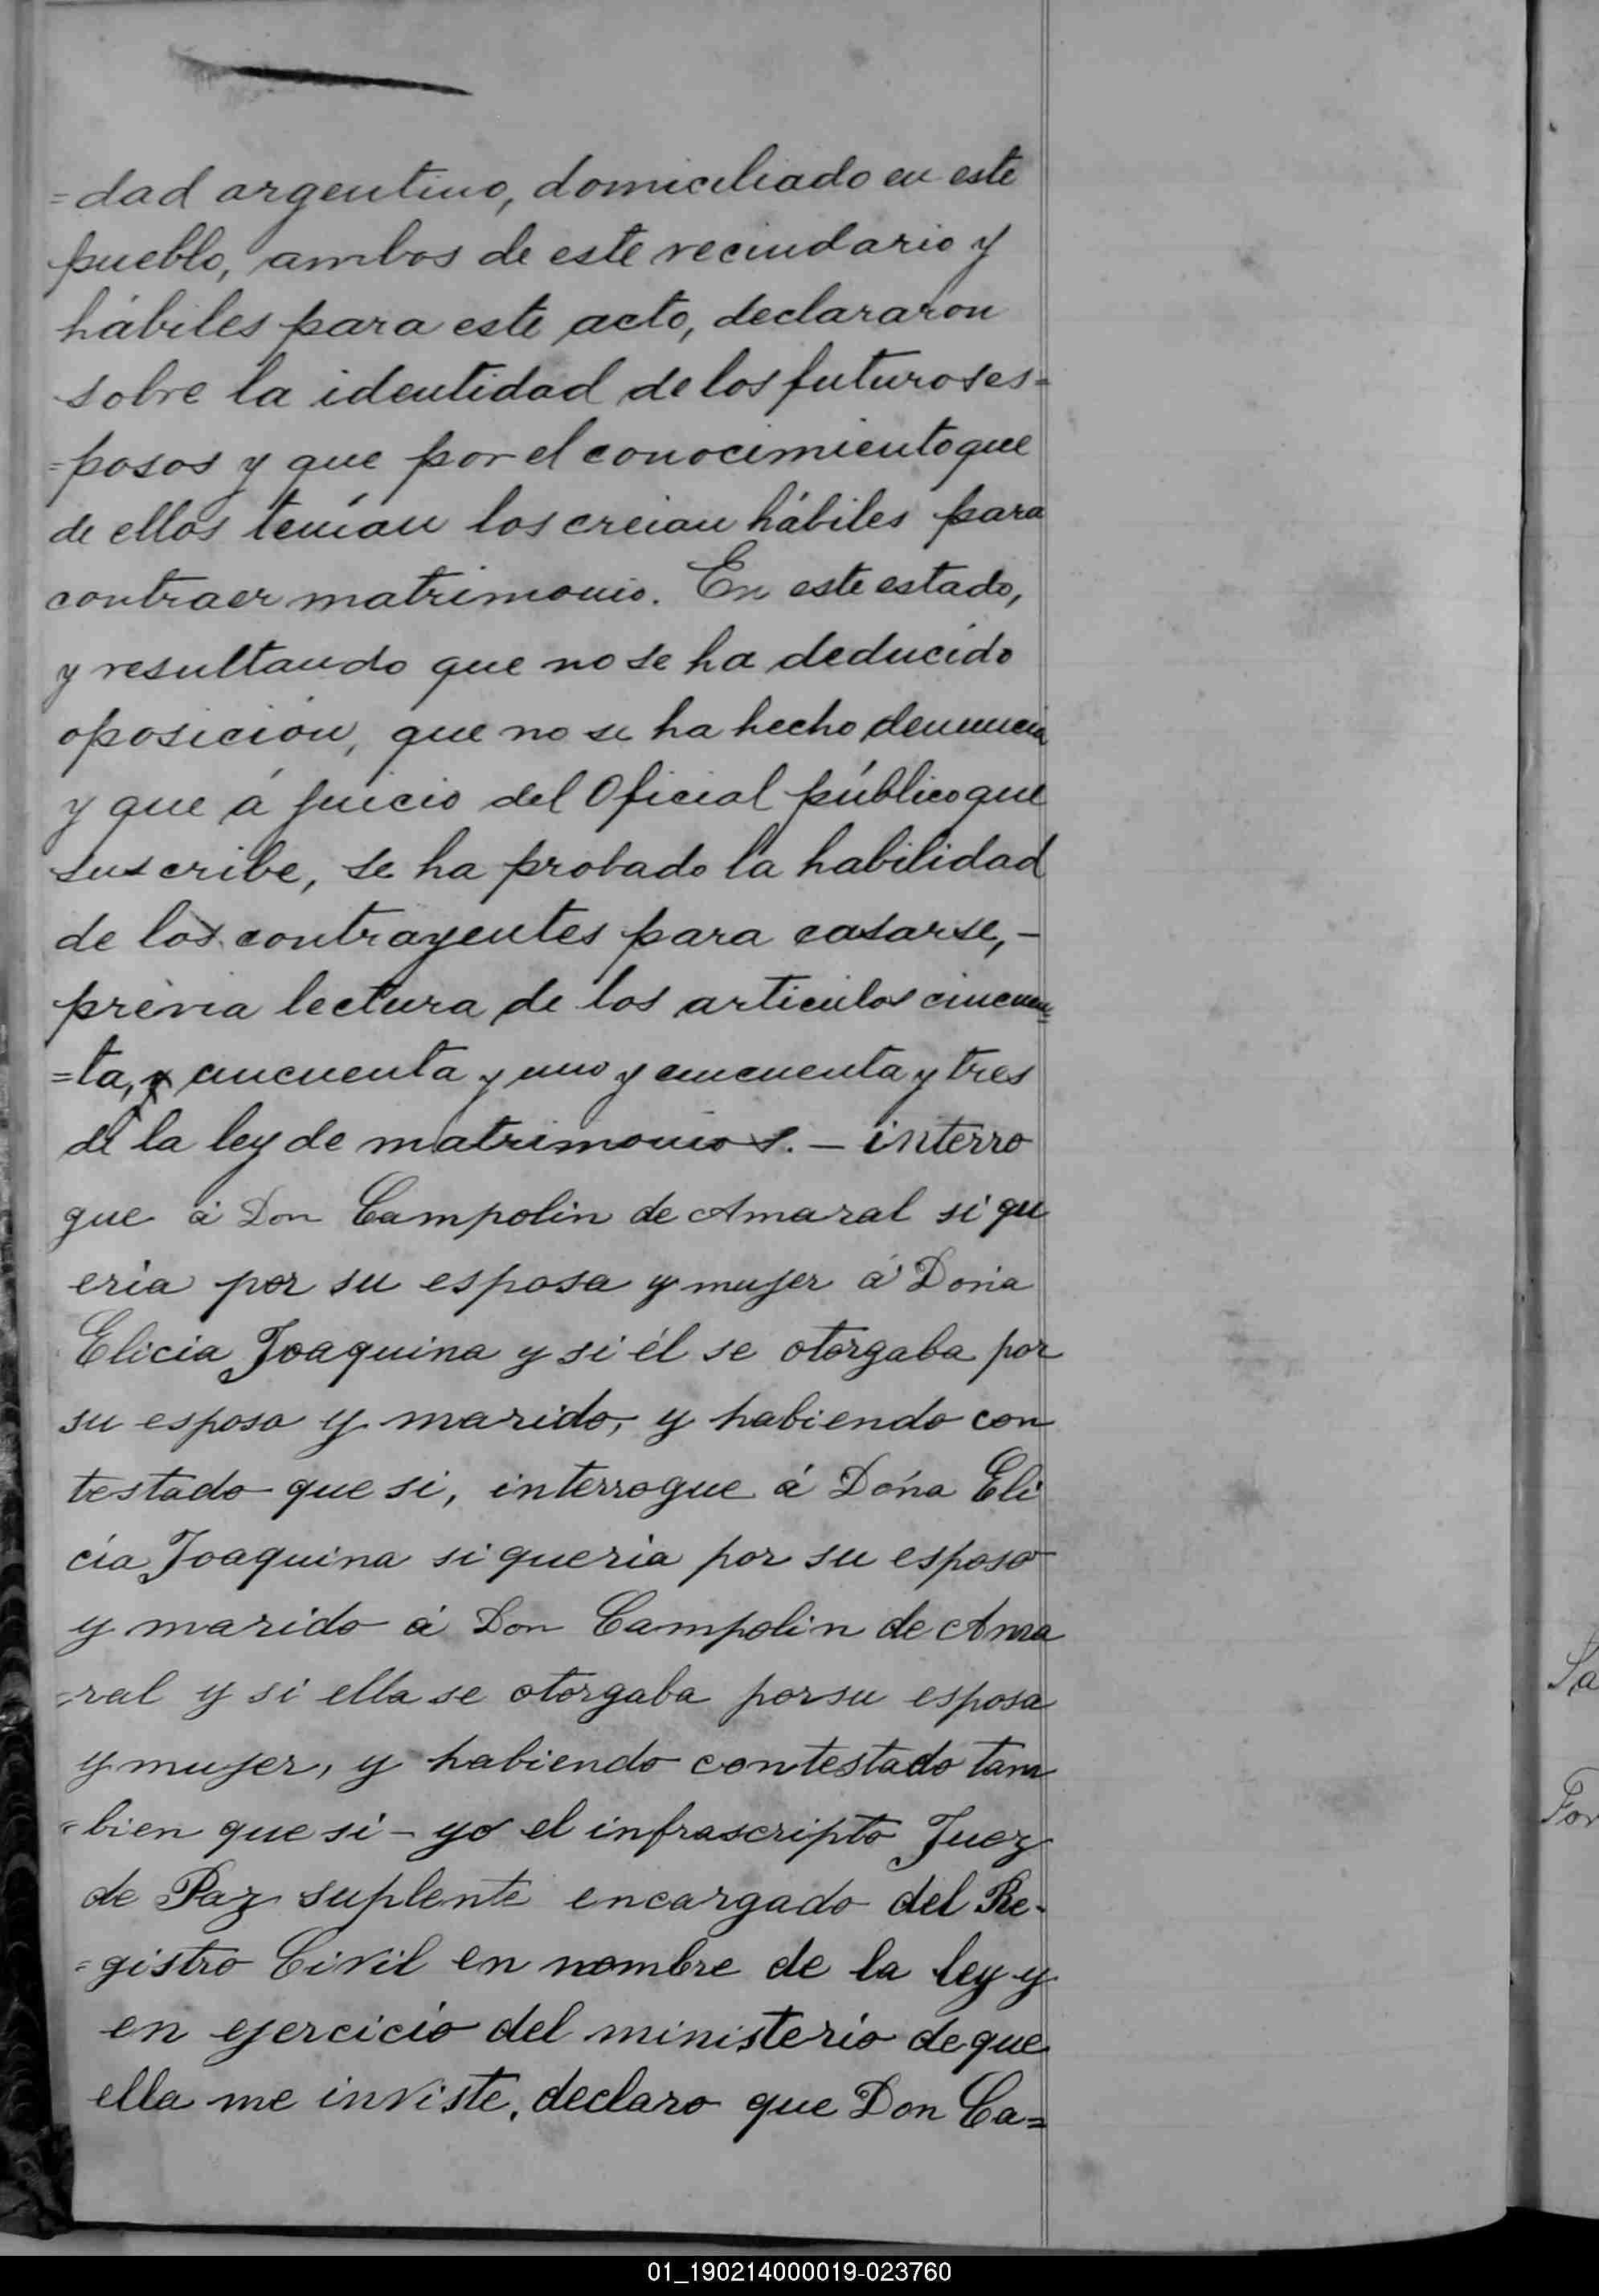 =dad argentino, domiciliado en este
pueblo, ambos de este vecindario y
hábiles para este acto, declararon
sobre la identidad de los futuros es=
=posos y que por el conocimiento que
de ellos tenían los creian hábiles para
contraer matrimonio. En este estado,
y resultando que no se ha deducido
oposición, que no se ha hecho denuncia
y que á juicio del Oficial público que
suscribe, se ha probado la habilidad
de los contrayentes para casarse, -
prévia lectura de los articulos cincuen=
=ta, y cincuenta y uno y cincuenta y tres
de la ley de matrimonios. - interro
gue á Don Campolin de Amaral si qu
eria por su esposa y mujer á Doña
Elicia Joaquina y si él se otorgaba por
su esposo y marido, y habiendo con
testado que si, interrogue á Doña Eli
cia Joaquina si queria por su esposo
y marido á Don Campolin de Ama
=ral y si ella se otorgaba por su esposa
y mujer, y habiendo contestado tam
=bien que si - yo el infrascripto Juez
de Paz suplente encargado del Re-
=gistro Civil en nombre de la ley y
en ejercicio del ministerio de que
ella me inviste, declaro que Don Ca=
Sa
For
01_190214000019-023760